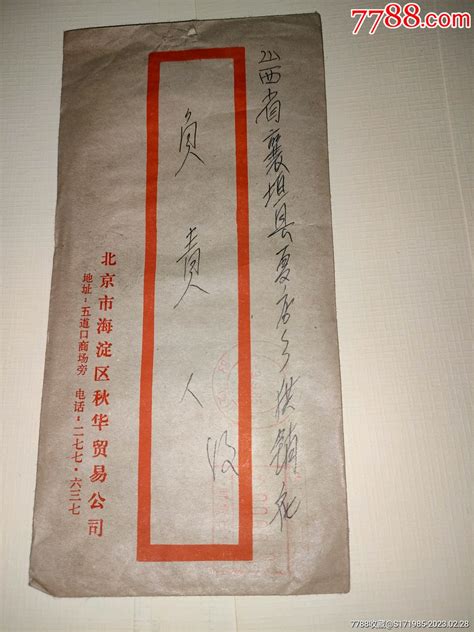 7788.com
山西省襄垣县夏店乡供销社
负责人 收
北京市海淀区秋华贸易公司
地址：五道口商场旁 电话：二七七·六三七
7788收藏@S171985-2023.02.28